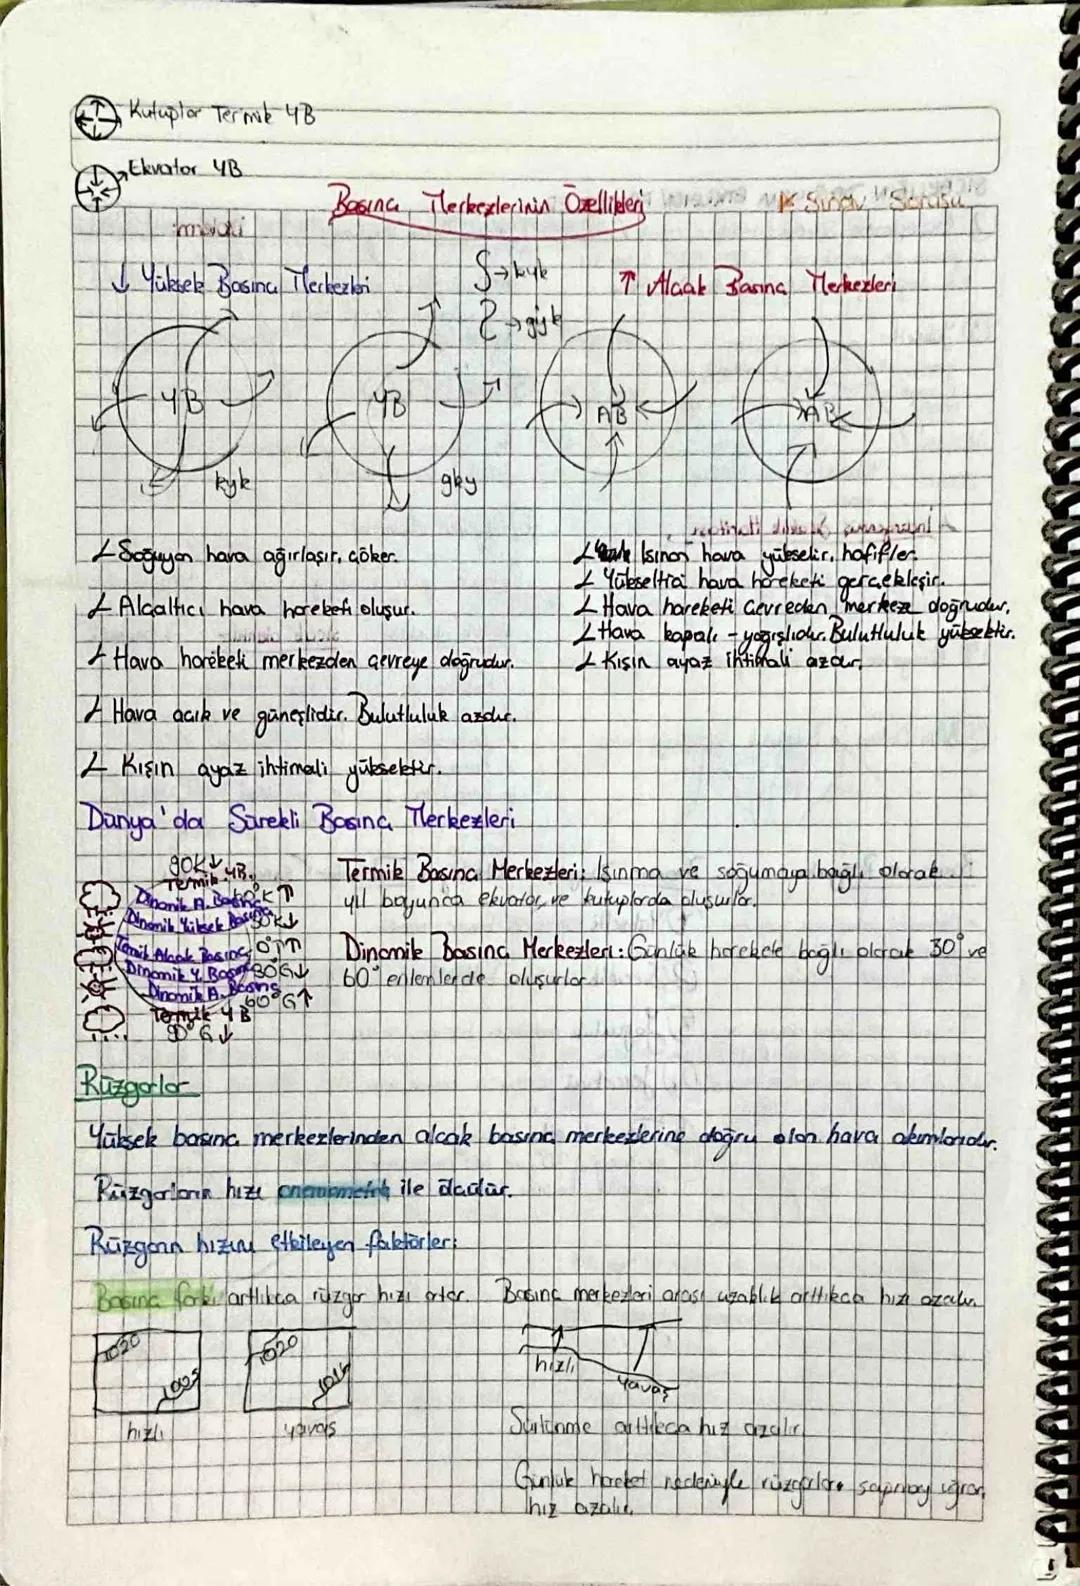 Kutuplar Termik YB
Ekvator YB
Basınç Merkezlerinin Özellikleri
* Sınav Sorusu
↓ Yüksek Basınç Merkezleri
→ kyk
→ gyk
↑ Alçak Basınç Merkezleri
YB
YB
AB
AB
kyk
gky
Soğuyan hava ağırlaşır, çöker.
Alçaltıcı hava hareketi oluşur.
Hava hareketi merkezden çevreye doğrudur.
Hava açık ve güneşlidir. Bulutluluk azdır.
Kışın ayaz ihtimali yüksektir.
Isınan hava yükselir, hafifler.
Yükseltici hava hareketi gerçekleşir.
Hava hareketi çevreden merkeze doğrudur.
Hava kapalı - yağışlıdır. Bulutluluk yüksektir.
Kışın ayaz ihtimali azdır.
Dünya'da Sürekli Basınç Merkezleri
90K↓
Termik YB.
Dinamik A. Basınç 60°K↑
Dinamik Yüksek Basınç 30K↓
Termik Alçak Basınç 0°↑
Dinamik Y. Basınç 30G↓
Dinamik A. Basınç
60°G↑
Termik YB
90°G↓
Termik Basınç Merkezleri: Isınma ve soğumaya bağlı olarak
yıl boyunca ekvator ve kutuplarda oluşurlar.
Dinamik Basınç Merkezleri: Günlük harekete bağlı olarak 30° ve
60° enlemlerde oluşurlar.
Rüzgarlar
Yüksek basınç merkezlerinden alçak basınç merkezlerine doğru olan hava akımlarıdır.
Rüzgarların hızı anemometre ile ölçülür.
Rüzgarın hızını etkileyen faktörler:
Basınç farkı arttıkca rüzgar hızı artar.
1020
1005
hızlı
1020
1016
yavaş
Basınç merkezleri arası uzaklık arttıkca hızı azalır.
hızlı
yavaş
Sürtünme arttıkca hız azalır
Günlük hareket nedeniyle rüzgarlar sapmaya uğrar,
hız azalır.